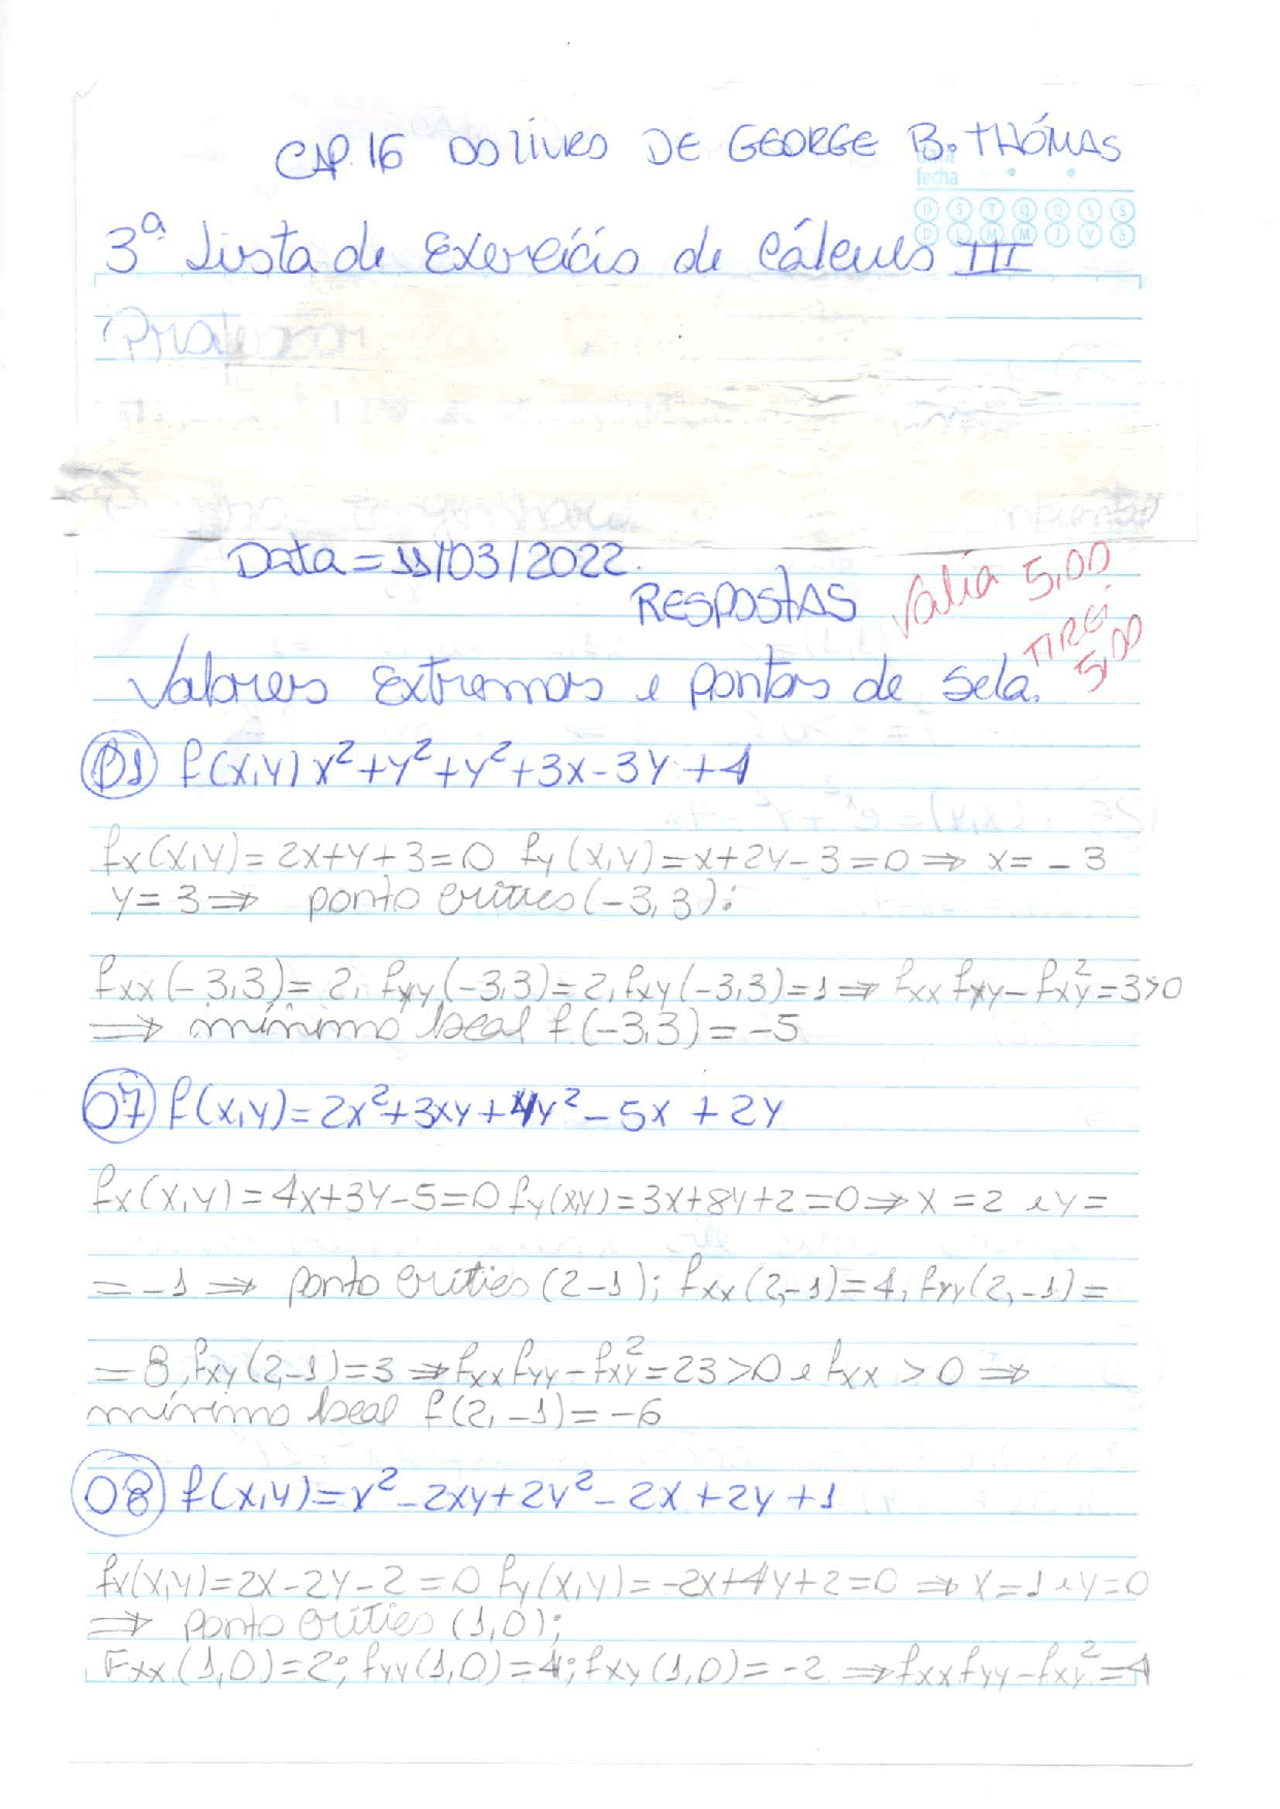 CAP. 16 DO LIVRO DE GEORGE B. THÓMAS
fecha
D S T Q Q S S
D L M M J V S
3ª Lista de Exercício de Cálculo III
Professor
Data = 11/03/2022.
RESPOSTAS
Valia 5,00
TIREI
5,00
Valores Extremos e pontos de Sela.
01 f(x,y) x²+y²+y²+3x-3y+4
fx(x,y)=2x+y+3=0 fy(x,y)=x+2y-3=0 ⇒ x=-3
y=3 ⇒ ponto crítico (-3,3);
fxx(-3,3)=2, fyy(-3,3)=2, fxy(-3,3)=1 ⇒ fxx fxy-fxy²=3>0
⇒ mínimo local f(-3,3)=-5
07 f(x,y)=2x²+3xy+4y²-5x+2y
fx(x,y)=4x+3y-5=0 fy(x,y)=3x+8y+2=0 ⇒ x=2 e y=
=-1 ⇒ ponto crítico (2-1); fxx(2,-1)=4, fyy(2,-1)=
=8, fxy(2,-1)=3 ⇒ fxx fyy-fxy²=23>0 e fxx>0 ⇒
mínimo local f(2,-1)=-6
08 f(x,y)=x²-2xy+2y²-2x+2y+1
fx(x,y)=2x-2y-2=0 fy(x,y)=-2x+4y+2=0 ⇒ x=1 e y=0
⇒ ponto crítico (1,0);
Fxx(1,0)=2; fyy(1,0)=4; fxy(1,0)=-2 ⇒ fxx fyy-fxy²=4